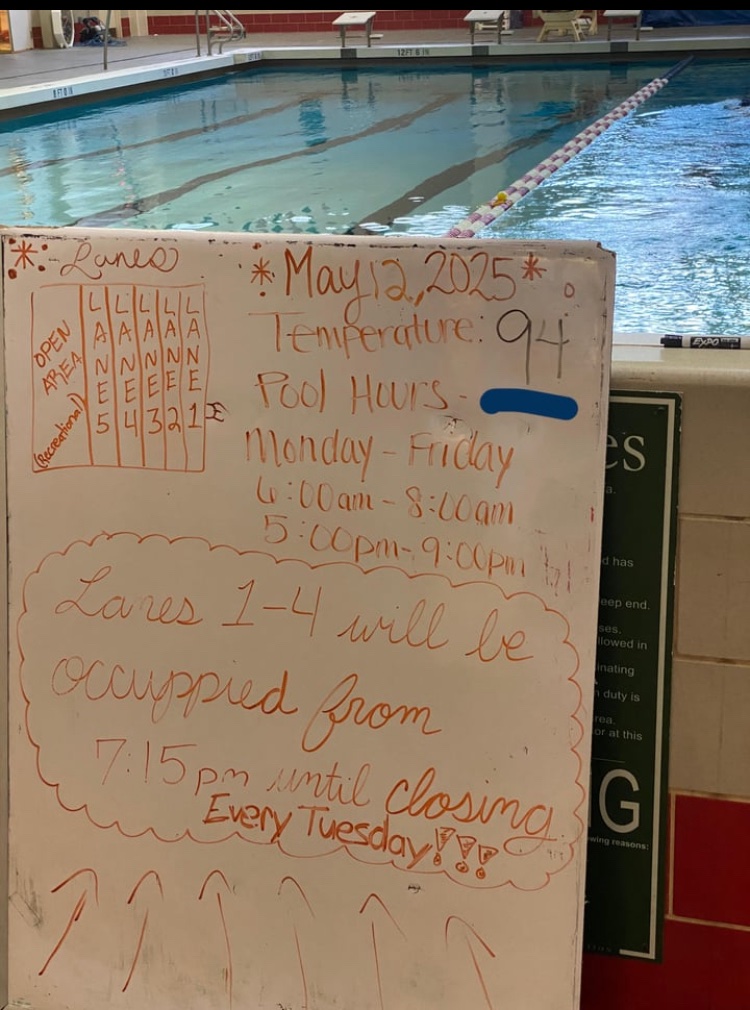 8 FT 0 IN
12 FT 6 IN
* Lanes
* May 12, 2025 *
OPEN AREA (Recreational)
LANE 5
LANE 4
LANE 3
LANE 2
LANE 1
Temperature: 94
Pool Hours -
Monday - Friday
6:00am - 8:00am
5:00pm - 9:00pm
Lanes 1-4 will be
occuppied from
7:15pm until closing
Every Tuesday!!!
EXPO
es
a.
d has
eep end.
ses.
llowed in
inating
n duty is
rea.
or at this
G
wing reasons: